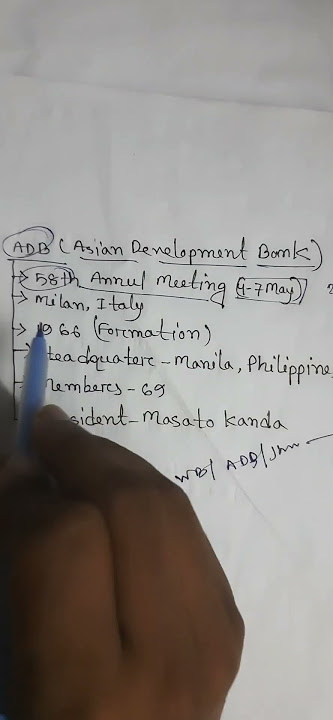 ADB (Asian Development Bank)
→ 58th Annul Meeting (4-7 May)
→ Milan, Italy
→ 1966 (Formation)
Headquaterc - Manila, Philippine
Members - 69
sident - Masato Kanda
WB/ ADB/